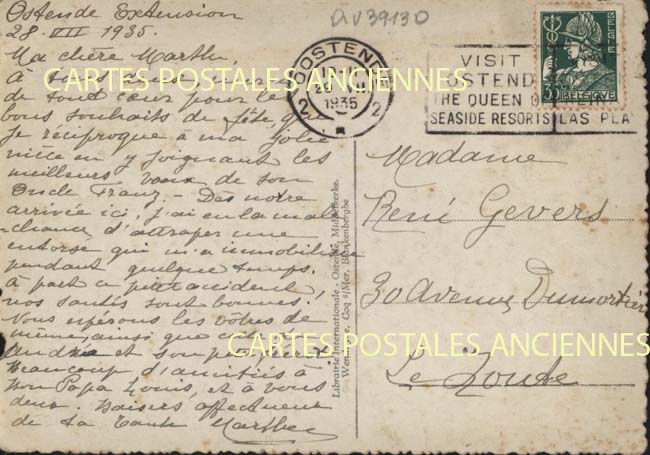 Ostende Extension
28. VIII 1935.
Ma chère Marthe,
à
de tout cœur pour les
bons souhaits de fête, que
je réciproque à ma jolie
nièce en y joignant les
meilleurs vœux de son
Oncle Franz. - Dès notre
arrivée ici, j'ai eu la mal-
chance d'attraper une
entorse qui m'a immobilisée
pendant quelque temps.
à part ce petit accident,
nos santés sont bonnes!
Nous espérons les vôtres de
même, ainsi que
et son
Beaucoup d'amitiés à
bon Papa Louis, et à vous
deux. Baisers affectueux
de ta tante Marthe
DV39130
OOSTENDE
2 1935 2
VISIT
OSTEND
THE QUEEN OF
SEASIDE RESORTS LAS PLA
BELGIE
35
BELGIQUE
Madame
René Gevers
30 Avenue Dumortier
Le Zoute
Librairie Internationale - Ostende, Middelkerke,
Wenduyne, Coq s/Mer, Blankenberghe
CARTES POSTALES ANCIENNES
CARTES POSTALES ANCIENNES